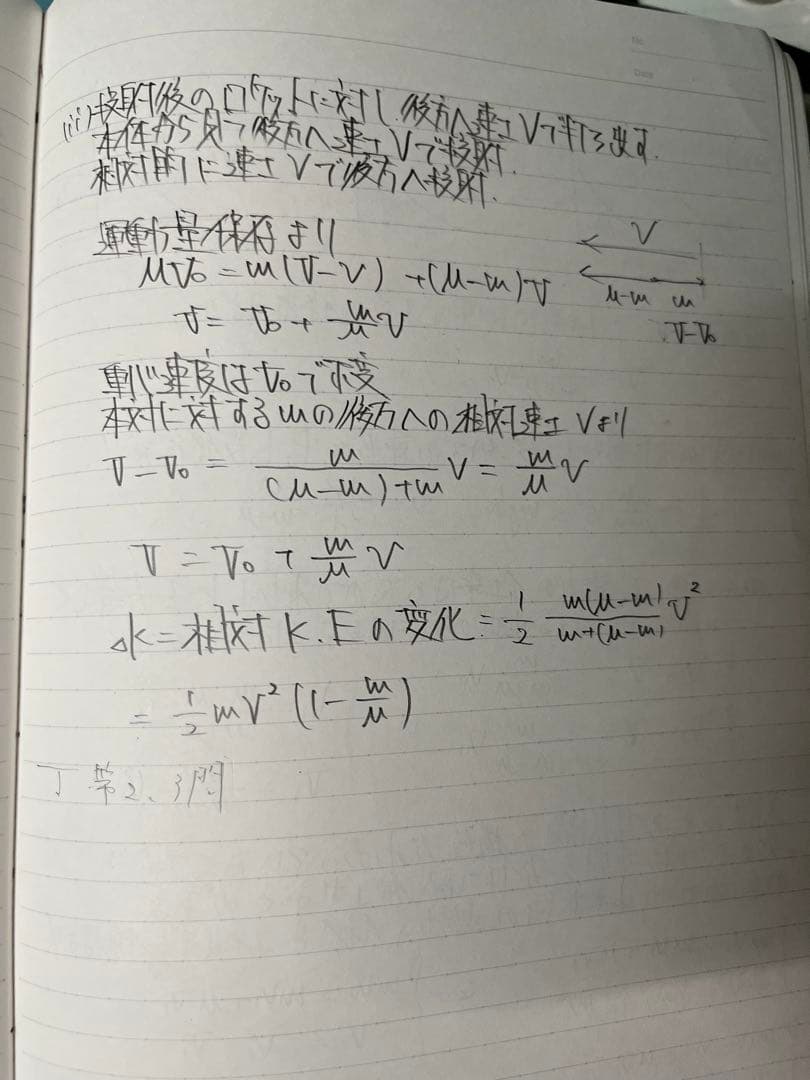 No.
Date
(iii) 投射後のロケットに対し、後方へ速さVで打ち出す.
本体から見て後方へ速さVで投射.
相対的に速さVで後方へ投射.
運動量保存より
V
Mv₀ = m(v-V) + (M-m)v
M-m m
v = v₀ + m/M V
v-v₀
重心速度はv₀で不変
本対に対するmの後方への相対速さVより
v - v₀ = m/((M-m)+m) V = m/M V
v = v₀ + m/M V
ΔK = 相対K.Eの変化 = 1/2 m(M-m)/(m+(M-m)) V²
= 1/2 mV² (1 - m/M)
第2、3問